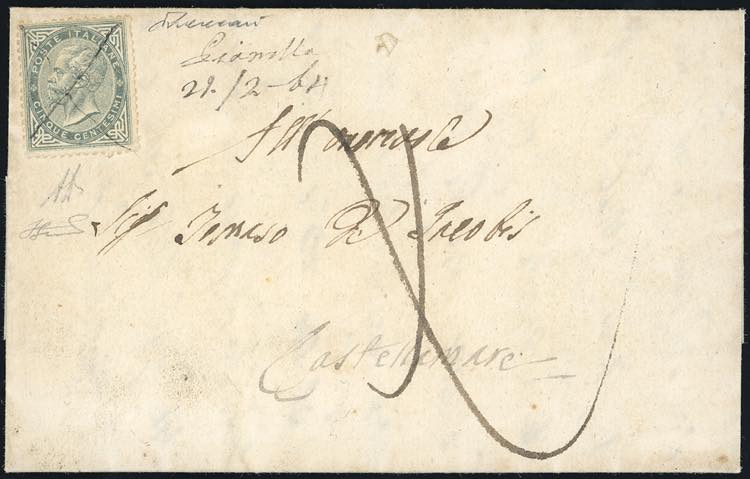 POSTE ITALIANE
CINQUE CENTESIMI
Pianella
21./2-64
All'Onorevole
Sig Tomaso De Jacobis
Castellamare